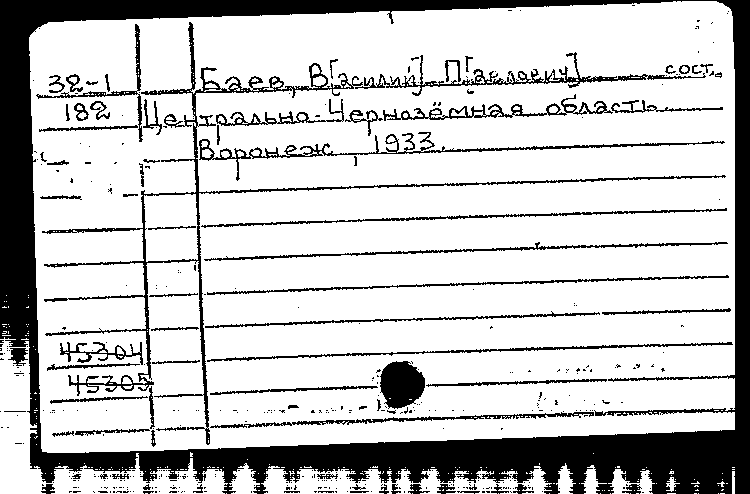 32-1 Баев, В[асилий] П[авлович] сост.
182 Центрально-Чернозёмная область.
Воронеж, 1933.
45304
45305